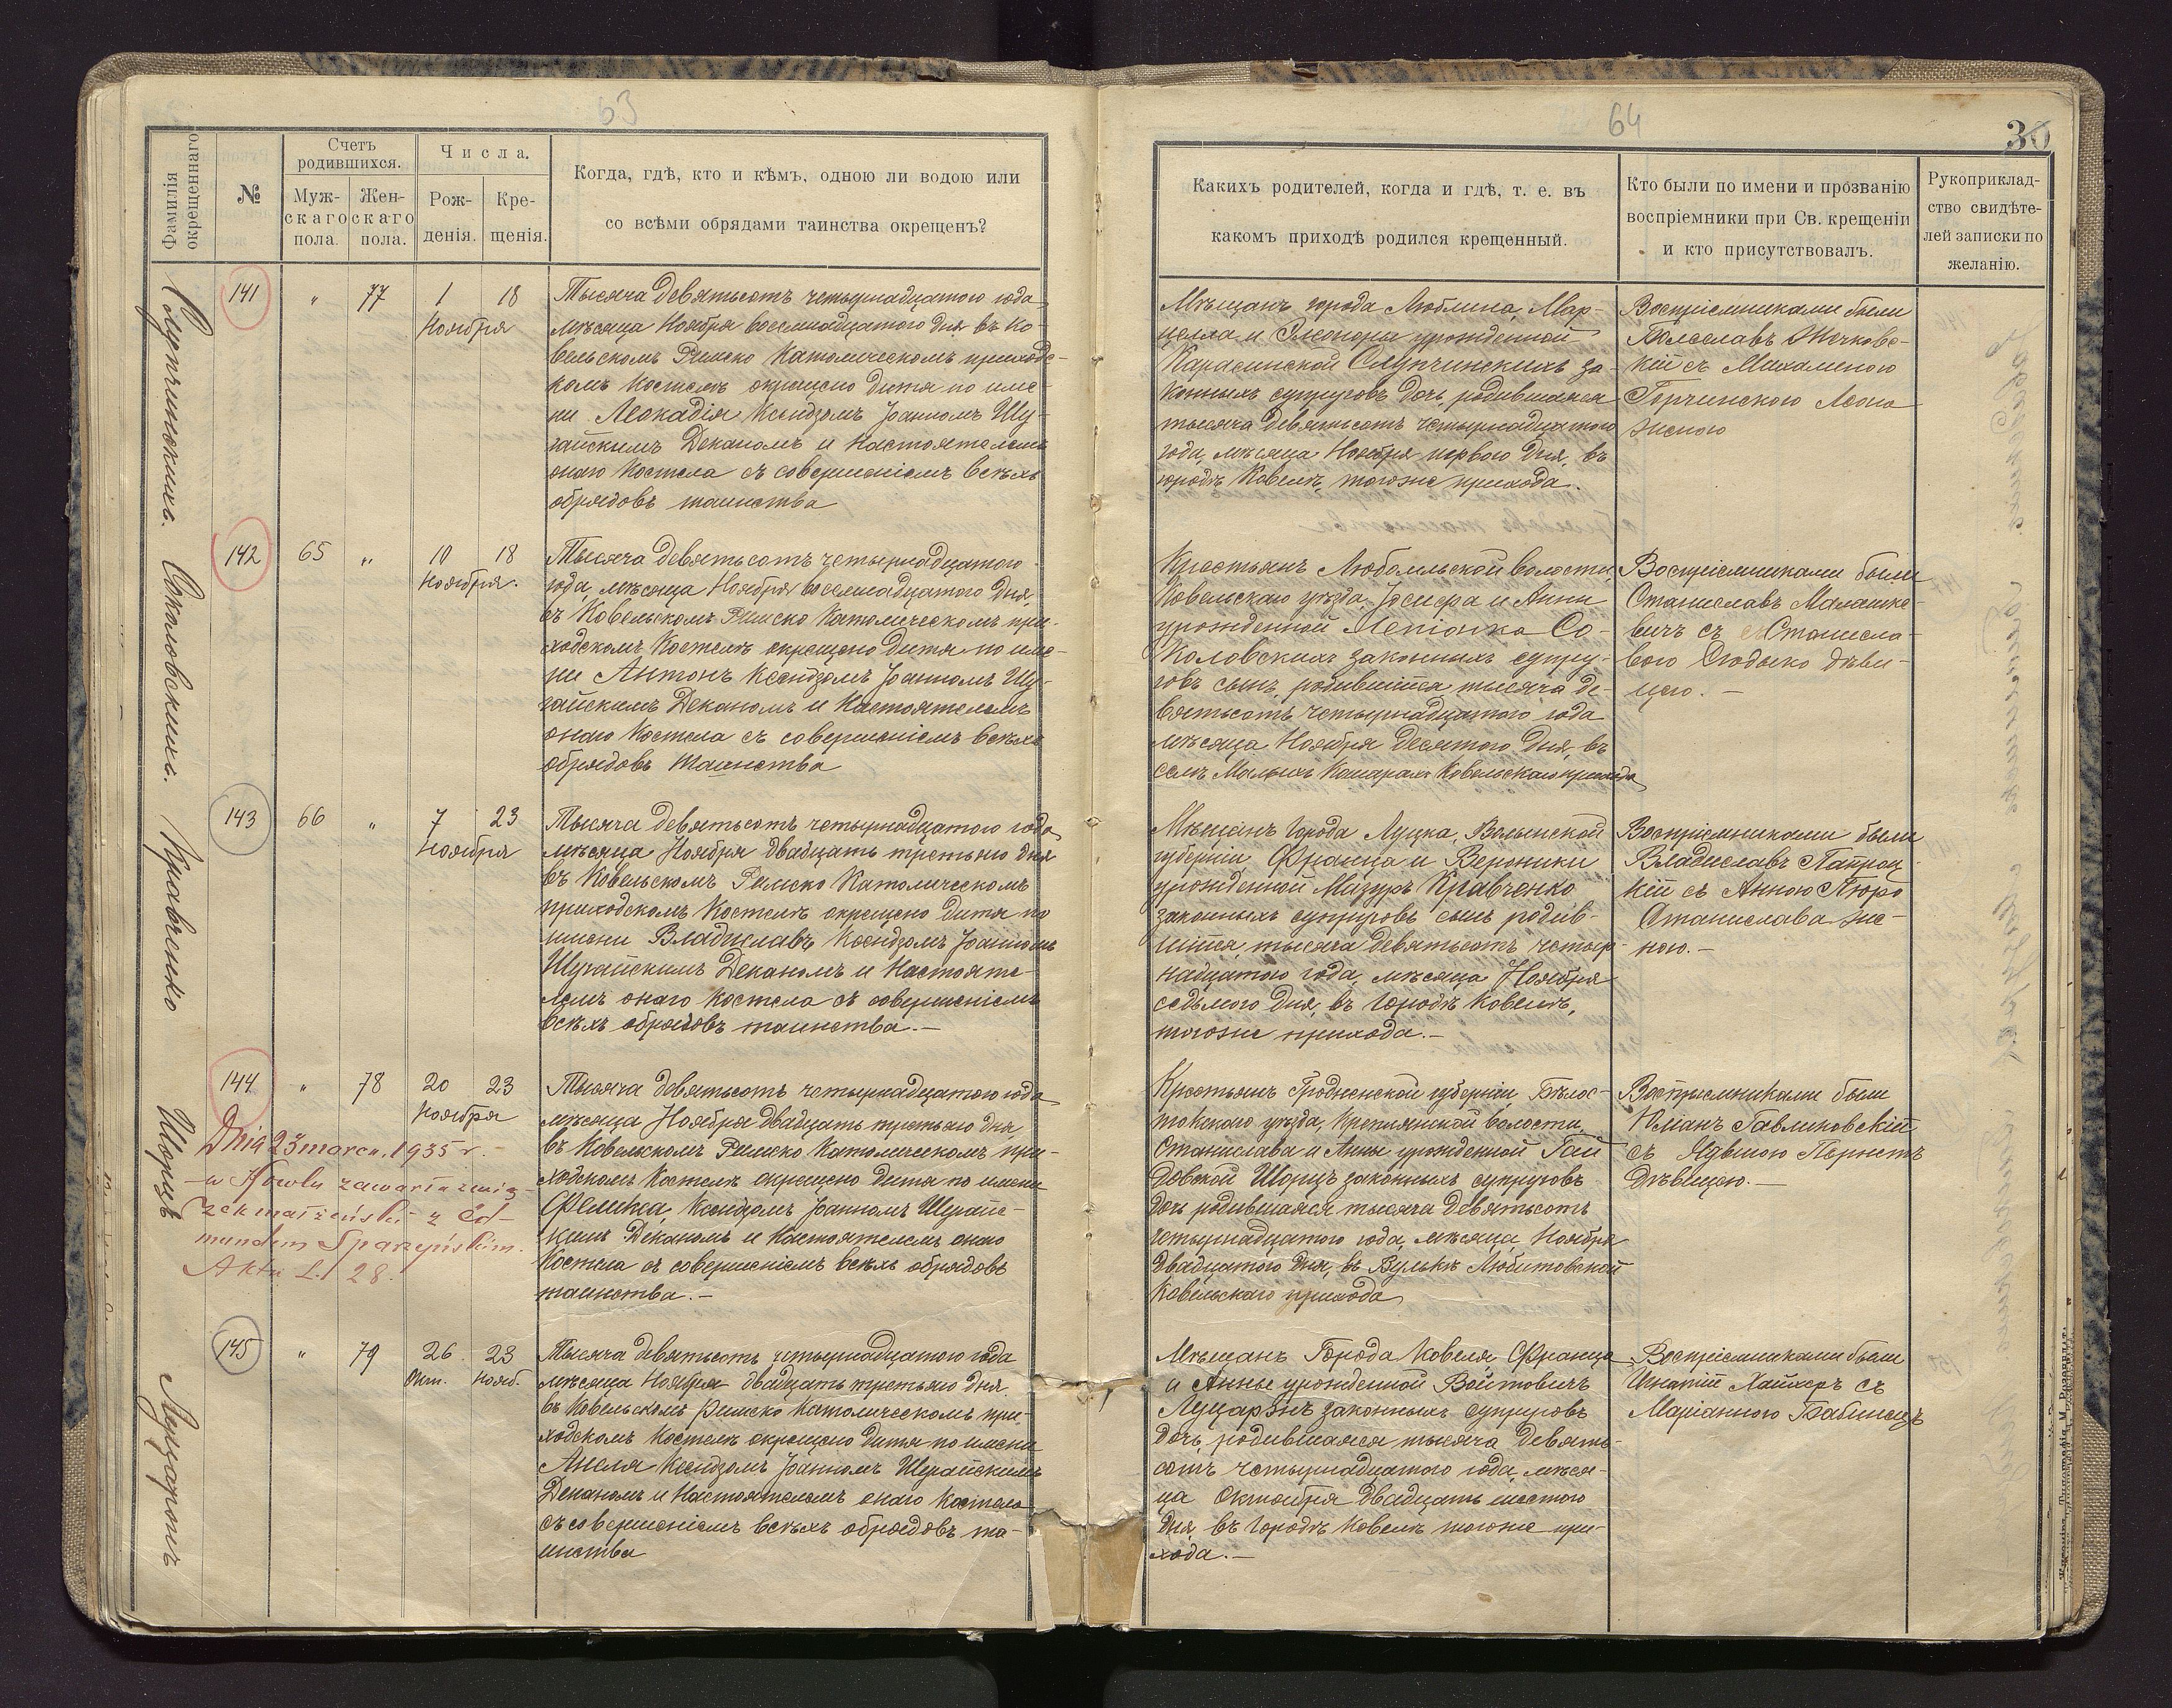 63
Фамилія окрещеннаго
№
Счетъ родившихся.
Муж-
скаго
пола.
Жен-
скаго
пола.
Числа.
Рож-
денія.
Кре-
щенія.
Когда, гдѣ, кто и кѣмъ, одною ли водою или
со всѣми обрядами таинства окрещенъ?
141
" 77 1 18
Ноября
Тысяча девятьсотъ четырнадцатого года
мѣсяца Ноября восемнадцатого дня въ Ко-
вельскомъ Римско Католическомъ приходс-
комъ Костелѣ окрещено дитя по име-
ни Леокадія Ксендзомъ Іоанномъ Шу-
гайскимъ Деканомъ и Настоятелемъ
онаго Костела съ совершеніемъ всѣхъ
обрядовъ таинства
142
65 " 10 18
Ноября.
Соколовскихъ.
Тысяча девятьсотъ четырнадцатого
года, мѣсяца Ноября восемнадцатого дня,
въ Ковельскомъ Римско Католическомъ при-
ходскомъ Костелѣ окрещено дитя по име-
ни Антонъ Ксендзомъ Іоанномъ Шу-
гайскимъ Деканомъ и Настоятелемъ
онаго Костела съ совершеніемъ всѣхъ
обрядовъ таинства
143
66 " 7 23
Ноября
Кравченко
Тысяча девятьсотъ четырнадцатого года
мѣсяца Ноября двадцать третьяго дня
въ Ковельскомъ Римско Католическомъ
приходскомъ Костелѣ окрещено дитя по
имени Владиславъ Ксендзомъ Іоанномъ
Шугайскимъ Деканомъ и Настояте-
лемъ онаго Костела съ совершеніемъ
всѣхъ обрядовъ таинства.—
144
" 78 20 23
Ноября
Шорцъ
Dnia 23 marca 1935 r.
w Kowlu zawarła zwią-
zek małżeński z Ed-
mundem
Aktu L. 28.
Тысяча девятьсотъ четырнадцатого года
мѣсяца Ноября двадцать третьяго дня
въ Ковельскомъ Римско Католическомъ при-
ходскомъ Костелѣ окрещено дитя по имени
Феликса, Ксендзомъ Іоанномъ Шугайс-
кимъ Деканомъ и Настоятелемъ онаго
Костела съ совершеніемъ всѣхъ обрядовъ
таинства.—
145
" 79 26 23
Окт. Нояб.
Тысяча девятьсотъ четырнадцатого года
мѣсяца Ноября двадцать третьяго дня.
въ Ковельскомъ Римско Католическомъ при-
ходскомъ Костелѣ окрещено дитя по имени
Анеля Ксендзомъ Іоанномъ Шугайскимъ
Деканомъ и Настоятелемъ онаго Костела
съ совершеніемъ всѣхъ обрядовъ та-
инства
64
30
Какихъ родителей, когда и гдѣ, т. е. въ
какомъ приходѣ родился крещенный.
Кто были по имени и прозванію
воспріемники при Св. крещеніи
и кто присутствовалъ.
Рукоприклад-
ство свидѣте-
лей записки по
желанію.
Мѣщанъ города Люблина, Мар-
целла и Элеоноры урожденной
Карасинской Слупчинскихъ за-
конныхъ супруговъ дочь, родившаяся
тысяча девятьсотъ четырнадцатого
года, мѣсяца Ноября перваго дня, въ
городѣ Ковелѣ, тогоже прихода.
Воспріемниками были
Болеславъ
кій съ Михалиною
Горчинскою
женою
Крестьянъ Любомльской волости
Ковельскаго уѣзда, Іосифа и Анны
урожденной Со-
коловскихъ законныхъ супру-
говъ сынъ, родившійся тысяча де-
вятьсотъ четырнадцатого года
мѣсяца Ноября десятого дня, въ
селѣ Малыхъ Кошарахъ Ковельскаго прихода
Воспріемниками были
Станиславъ Малашке-
вичъ съ Станисла-
вою дѣви-
цею.—
Мѣщанъ города Луцка, Волынской
губерніи Франца и Вероники
урожденной Мазуръ Кравченко
законныхъ супруговъ сынъ родив-
шійся, тысяча девятьсотъ четыр-
надцатого года, мѣсяца Ноября
седьмого дня, въ городѣ Ковелѣ,
тогоже прихода.—
Воспріемниками были
Владиславъ
кій съ Анною Пюро
Станислава же-
ною.—
Крестьянъ Гродненской губерніи Бѣлос-
токскаго уѣзда, волости,
Станислава и Анны урожденной Гай
довской Шорцъ законныхъ супруговъ
дочь родившаяся тысяча девятьсотъ
четырнадцатого года, мѣсяца Ноября
двадцатого дня, въ Вулькѣ Любитовской
Ковельскаго прихода
Воспріемниками были
Юліанъ Гавликовскій
съ Ядвигою
дѣвицею.—
Мѣщанъ Города Ковеля Франца
и Анны урожденной Войтовичъ
законныхъ супруговъ
дочь, родившаяся тысяча девять-
сотъ четырнадцатого года, мѣся-
ца Октября двадцать шестого
дня въ городѣ Ковелѣ тогоже при-
хода.—
Воспріемниками были
Игнатій съ
Маріанною